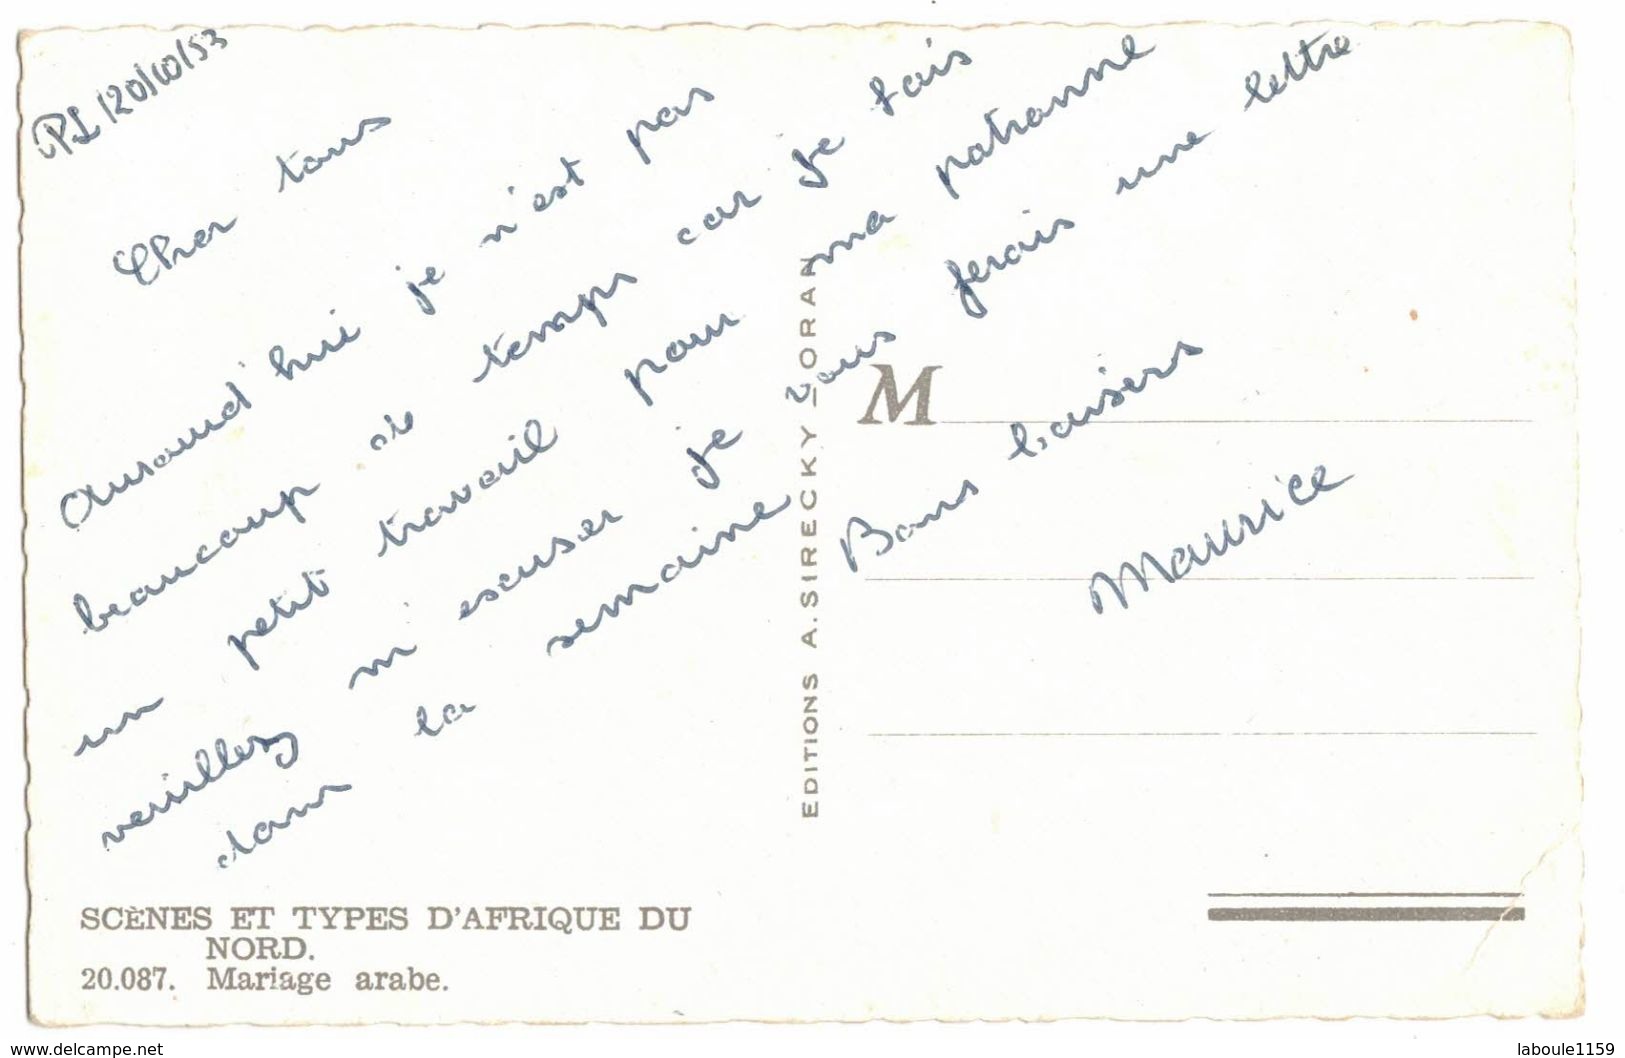 PS /20/10/53
Cher tous
Auraud'hui je n'est pas
beaucoup de temps car je fais
un petit travail pour ma patronne
veuillez m'escuser je vous ferais une lettre
dans la semaine
Bons baisers
Maurice
M
EDITIONS A. SIRECKY _ ORAN
SCÈNES ET TYPES D'AFRIQUE DU
NORD.
20.087. Mariage arabe.
www.delcampe.net
laboule1159